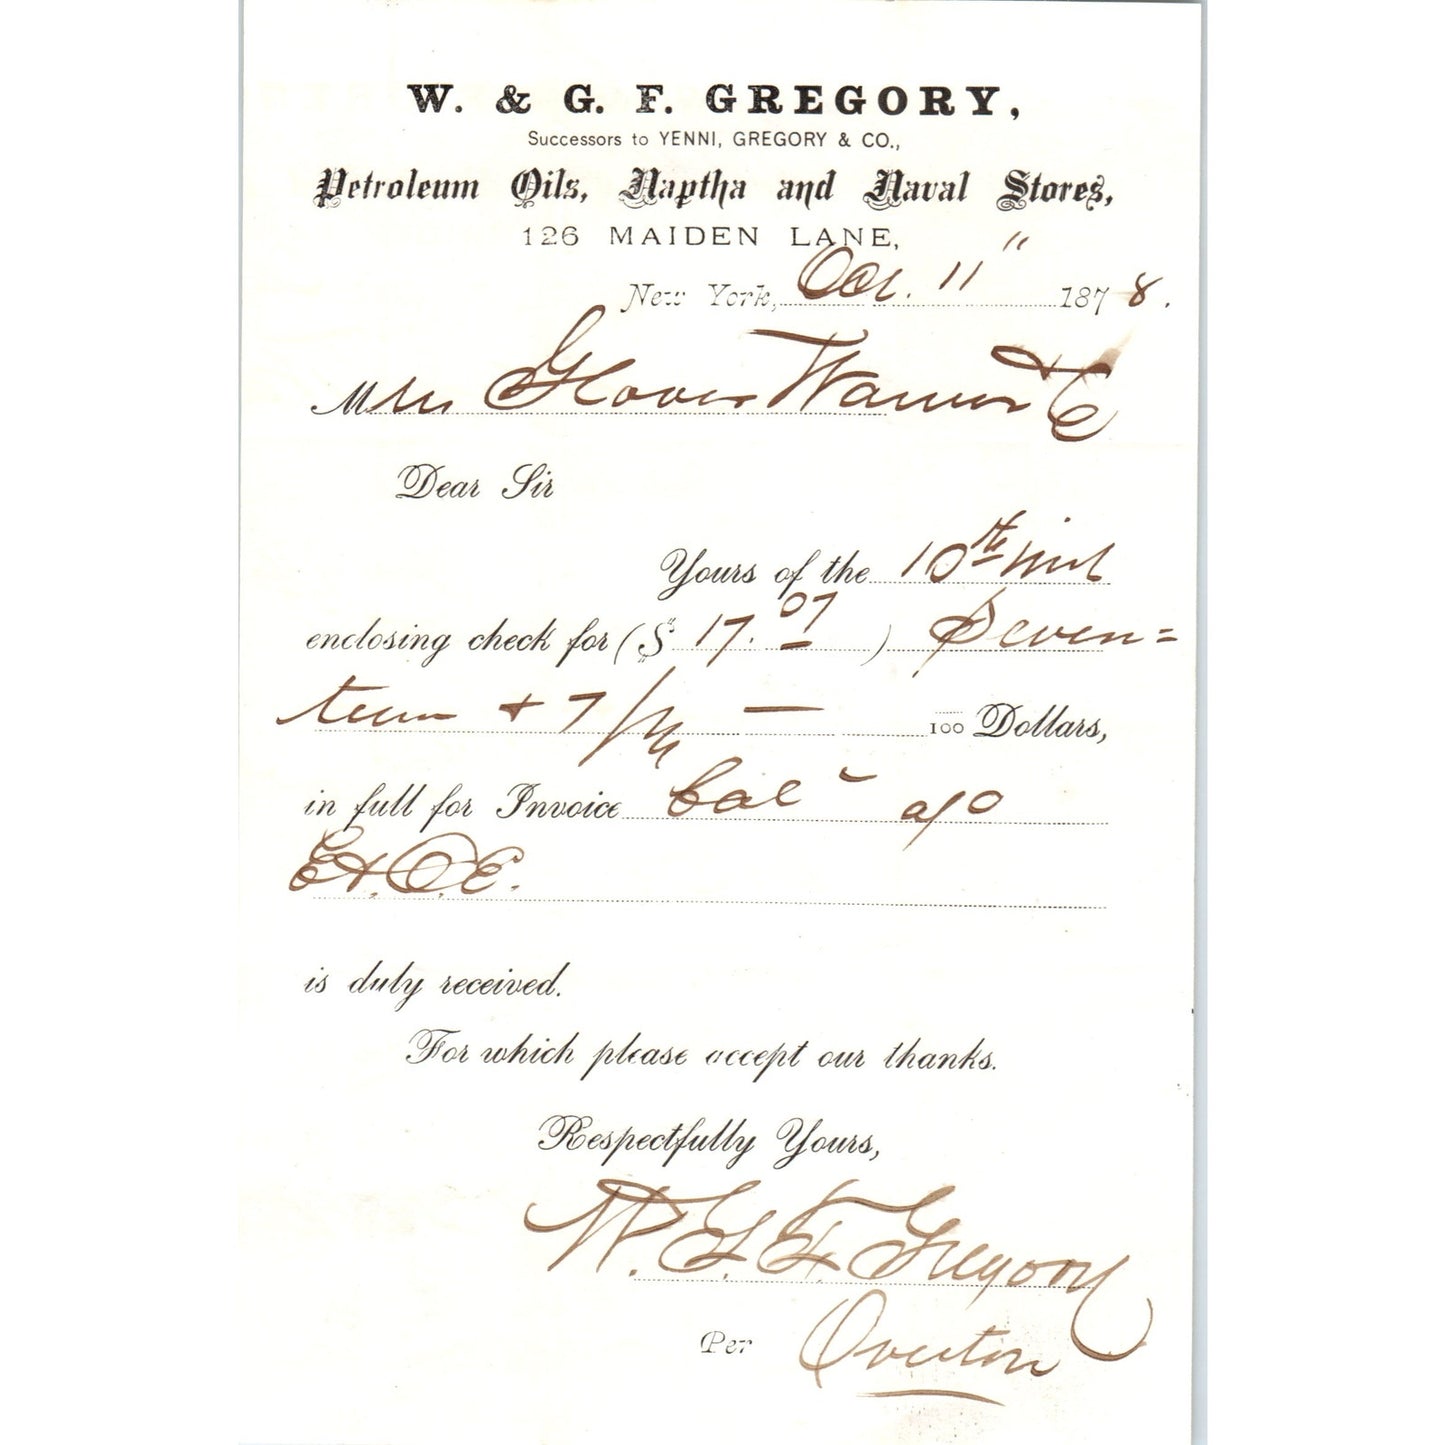 W. & G. F. GREGORY,
Successors to YENNI, GREGORY & CO.,
Petroleum Oils, Naptha and Naval Stores,
126 MAIDEN LANE,
New York, Oct. 11" 1878.
Mess Glover Warner & Co
Dear Sir
Yours of the 10th inst
enclosing check for ($ 17.07 ) Seven=
teen + 7/100 — 100 Dollars,
in full for Invoice Bal a/c
E. & O. E.
is duly received.
For which please accept our thanks.
Respectfully Yours,
W. & G. F. Gregory
Per Overton